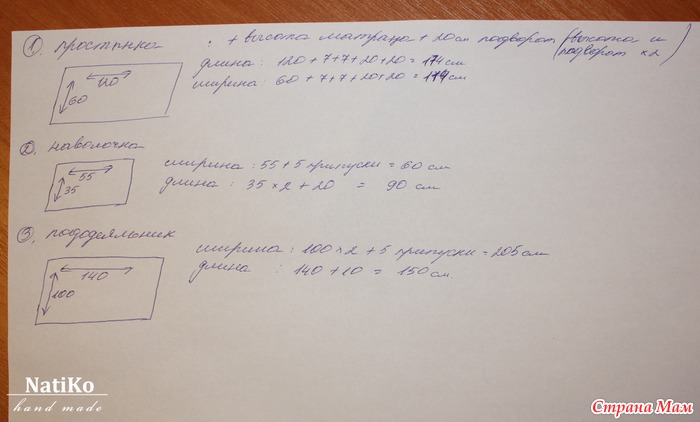 1. простынка
+ высота матраца + 20 см подворот (высота и подворот ×2)
120
60
длина: 120 + 7 + 7 + 20 + 20 = 174 см
ширина: 60 + 7 + 7 + 20 + 20 = 114 см
2. наволочка
55
35
ширина: 55 + 5 припуски = 60 см
длина: 35 × 2 + 20 = 90 см
3. пододеяльник
140
100
ширина: 100 × 2 + 5 припуски = 205 см
длина: 140 + 10 = 150 см.
NatiKo
hand made
Страна Мам